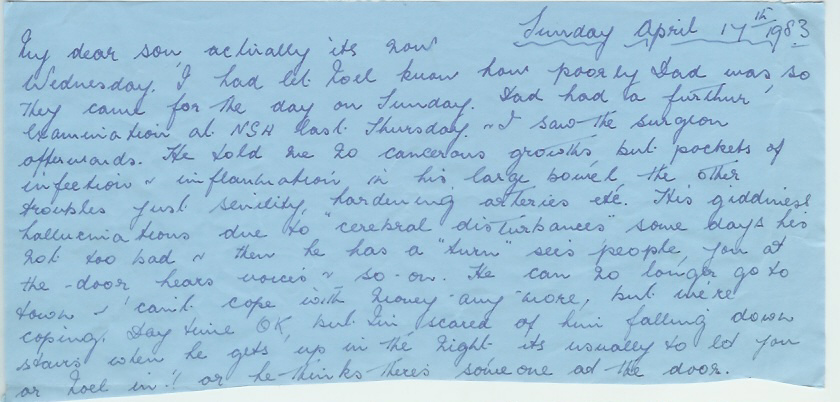 Sunday April 17th 1983
My dear son actually its now
Wednesday. I had let Noel know how poorly Dad was, so
they came for the day on Sunday. Dad had a furthur
examination at NSH last Thursday. ~ I saw the surgeon
afterwards. He told me no cancerous growths but pockets of
infection ~ inflammation in his large bowel the other
troubles just senility, hardening arteries etc. His giddiness
hallucinations due to "cerebral disturbances" some days his
not too bad ~ then he has a "turn" sees people, you at
the-door hears voices ~ so-on. He can no longer go to
town ~ can't cope with money-any-more, but we're
coping. Day time OK, but I'm scared of him falling down
stairs when he gets up in the night its usually to let you
or Noel in!! or he thinks theres someone at the door.